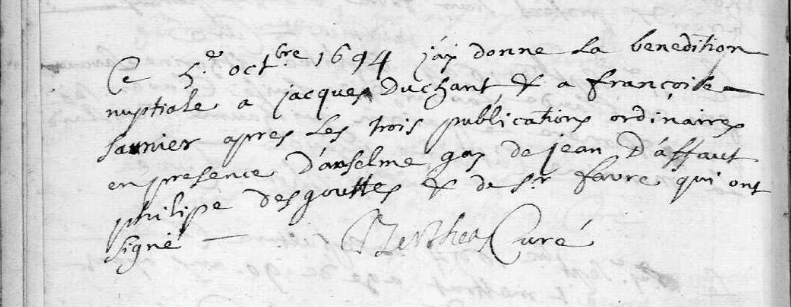 Ce 5.e octbre 1694 j'ai donne la benedition
nuptiale a jacques Duchant & a françoise
saunier apres les trois publications ordinaires
en presence d'anselme gay de jean D'affaut
philipe desgouttes & de sr. favre qui ont
signé — Berthea Curé